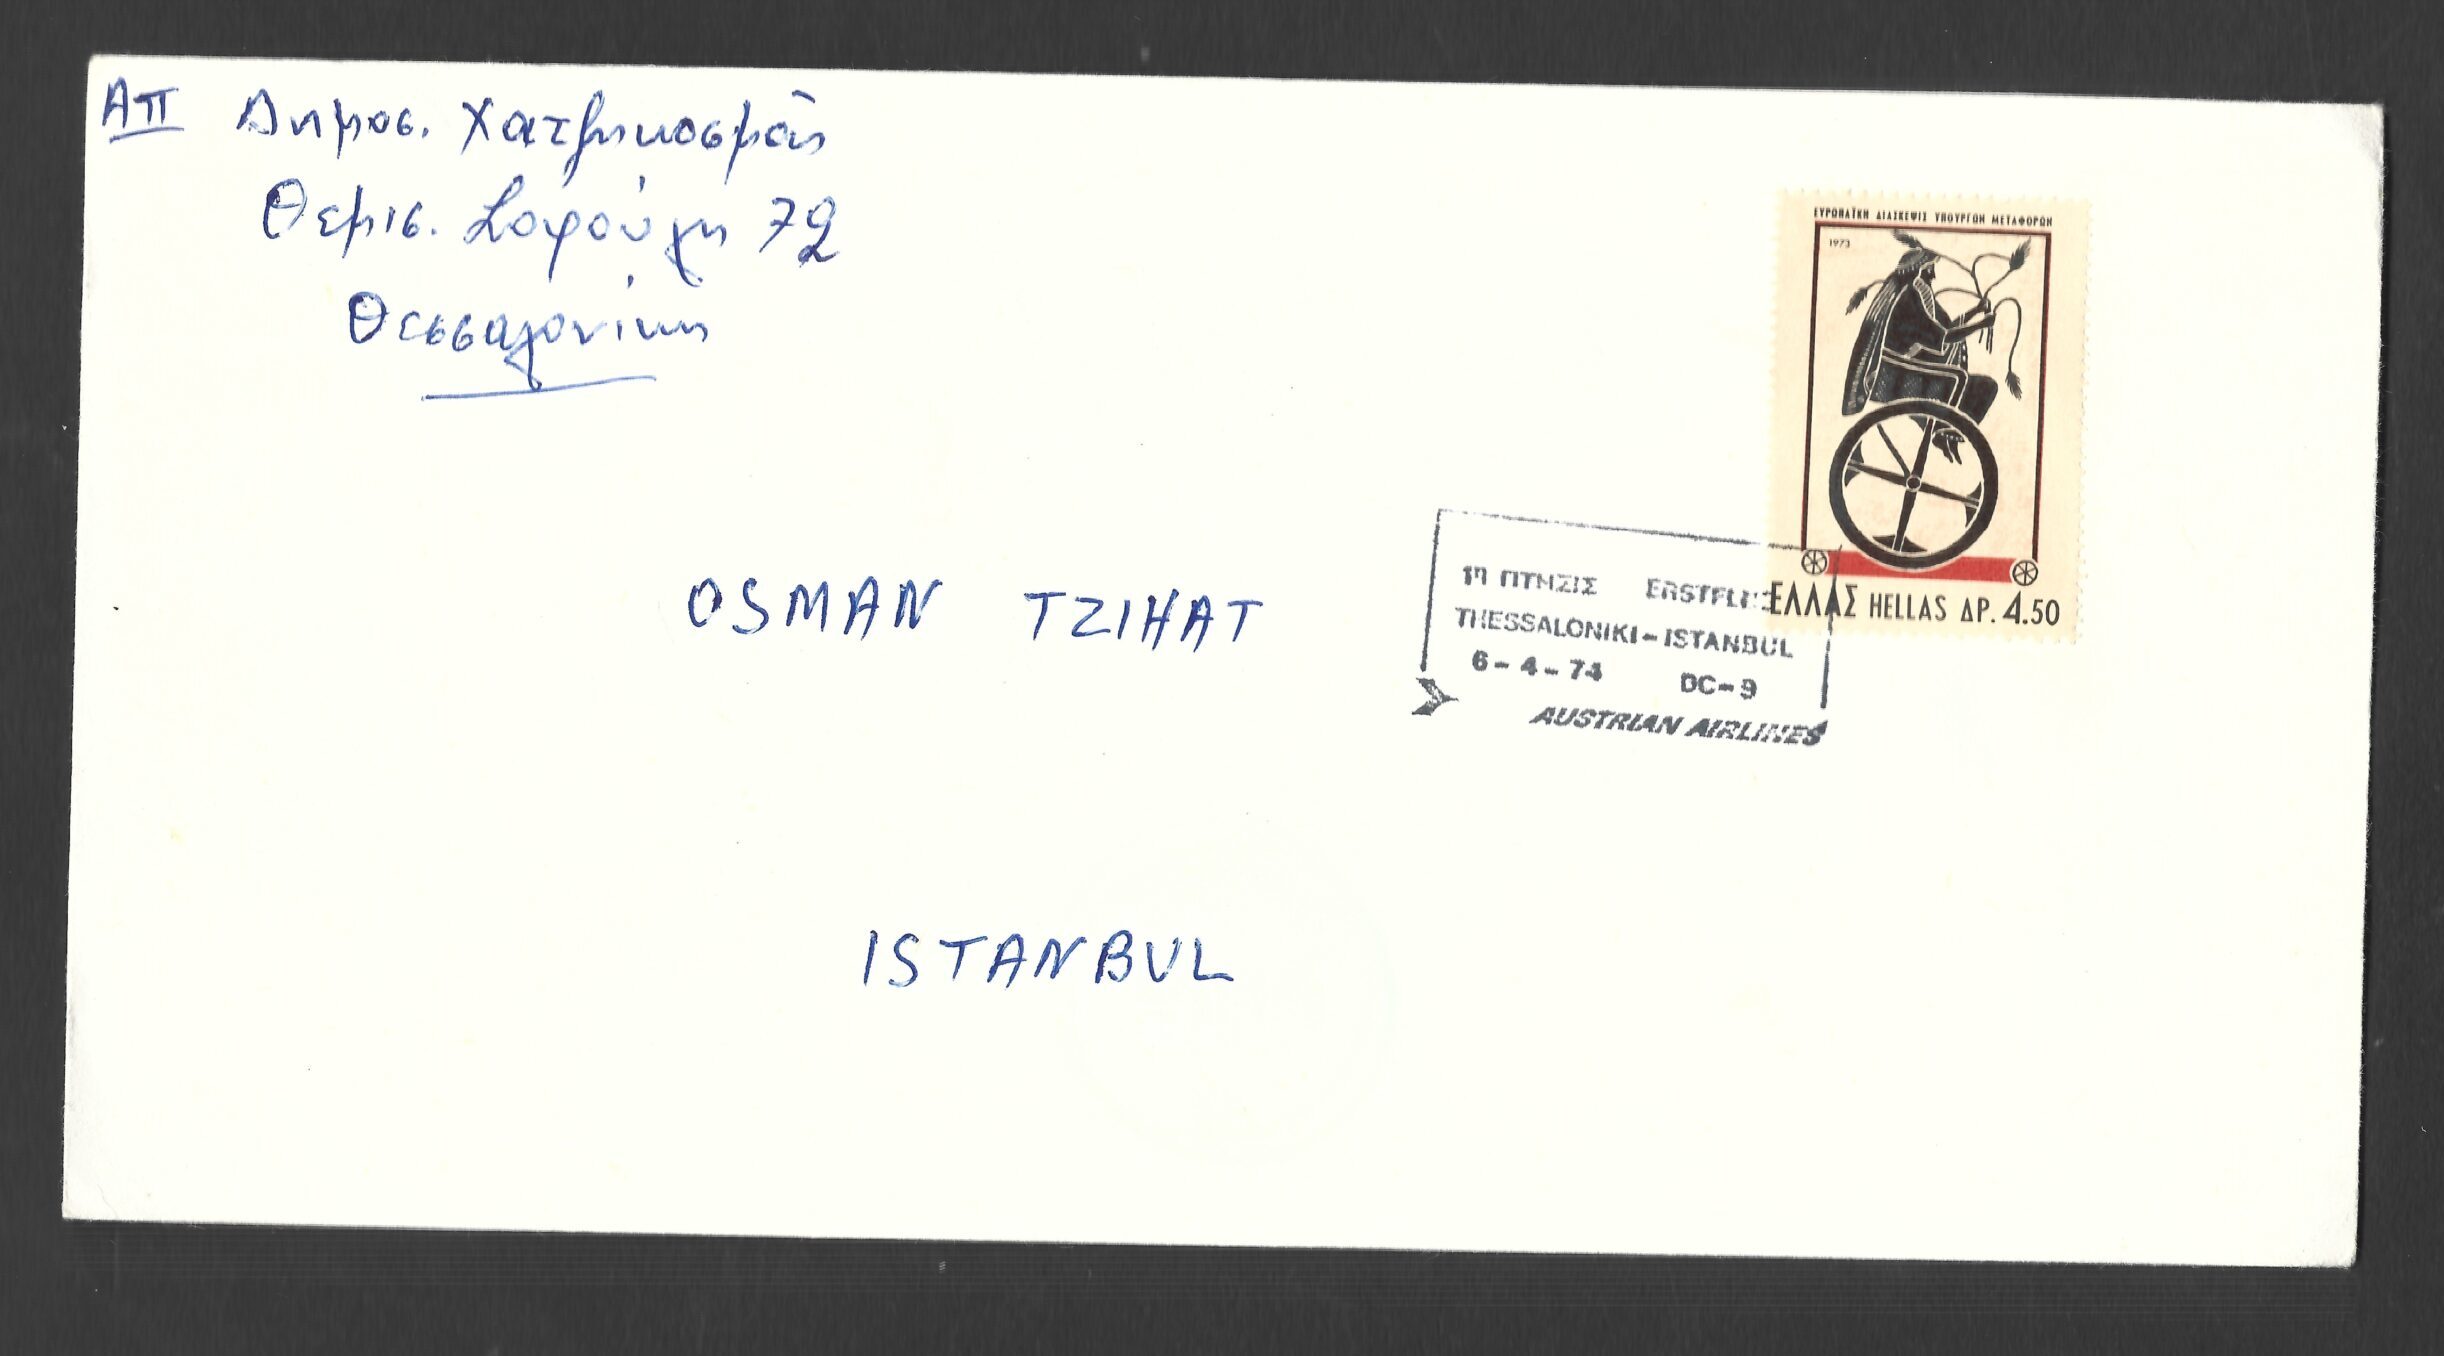 ΑΠ Δημοσ. Χατζηκοσμᾶς
Θεμισ. Σοφούλη 72
Θεσσαλονίκη
ΕΥΡΩΠΑΪΚΗ ΔΙΑΣΚΕΨΙΣ ΥΠΟΥΡΓΩΝ ΜΕΤΑΦΟΡΩΝ
1973
ΕΛΛΑΣ HELLAS ΔΡ. 4.50
1η ΠΤΗΣΙΣ
THESSALONIKI - ISTANBUL
6 - 4 - 74 DC - 9
AUSTRIAN AIRLINES
OSMAN TZIHAT
ISTANBUL